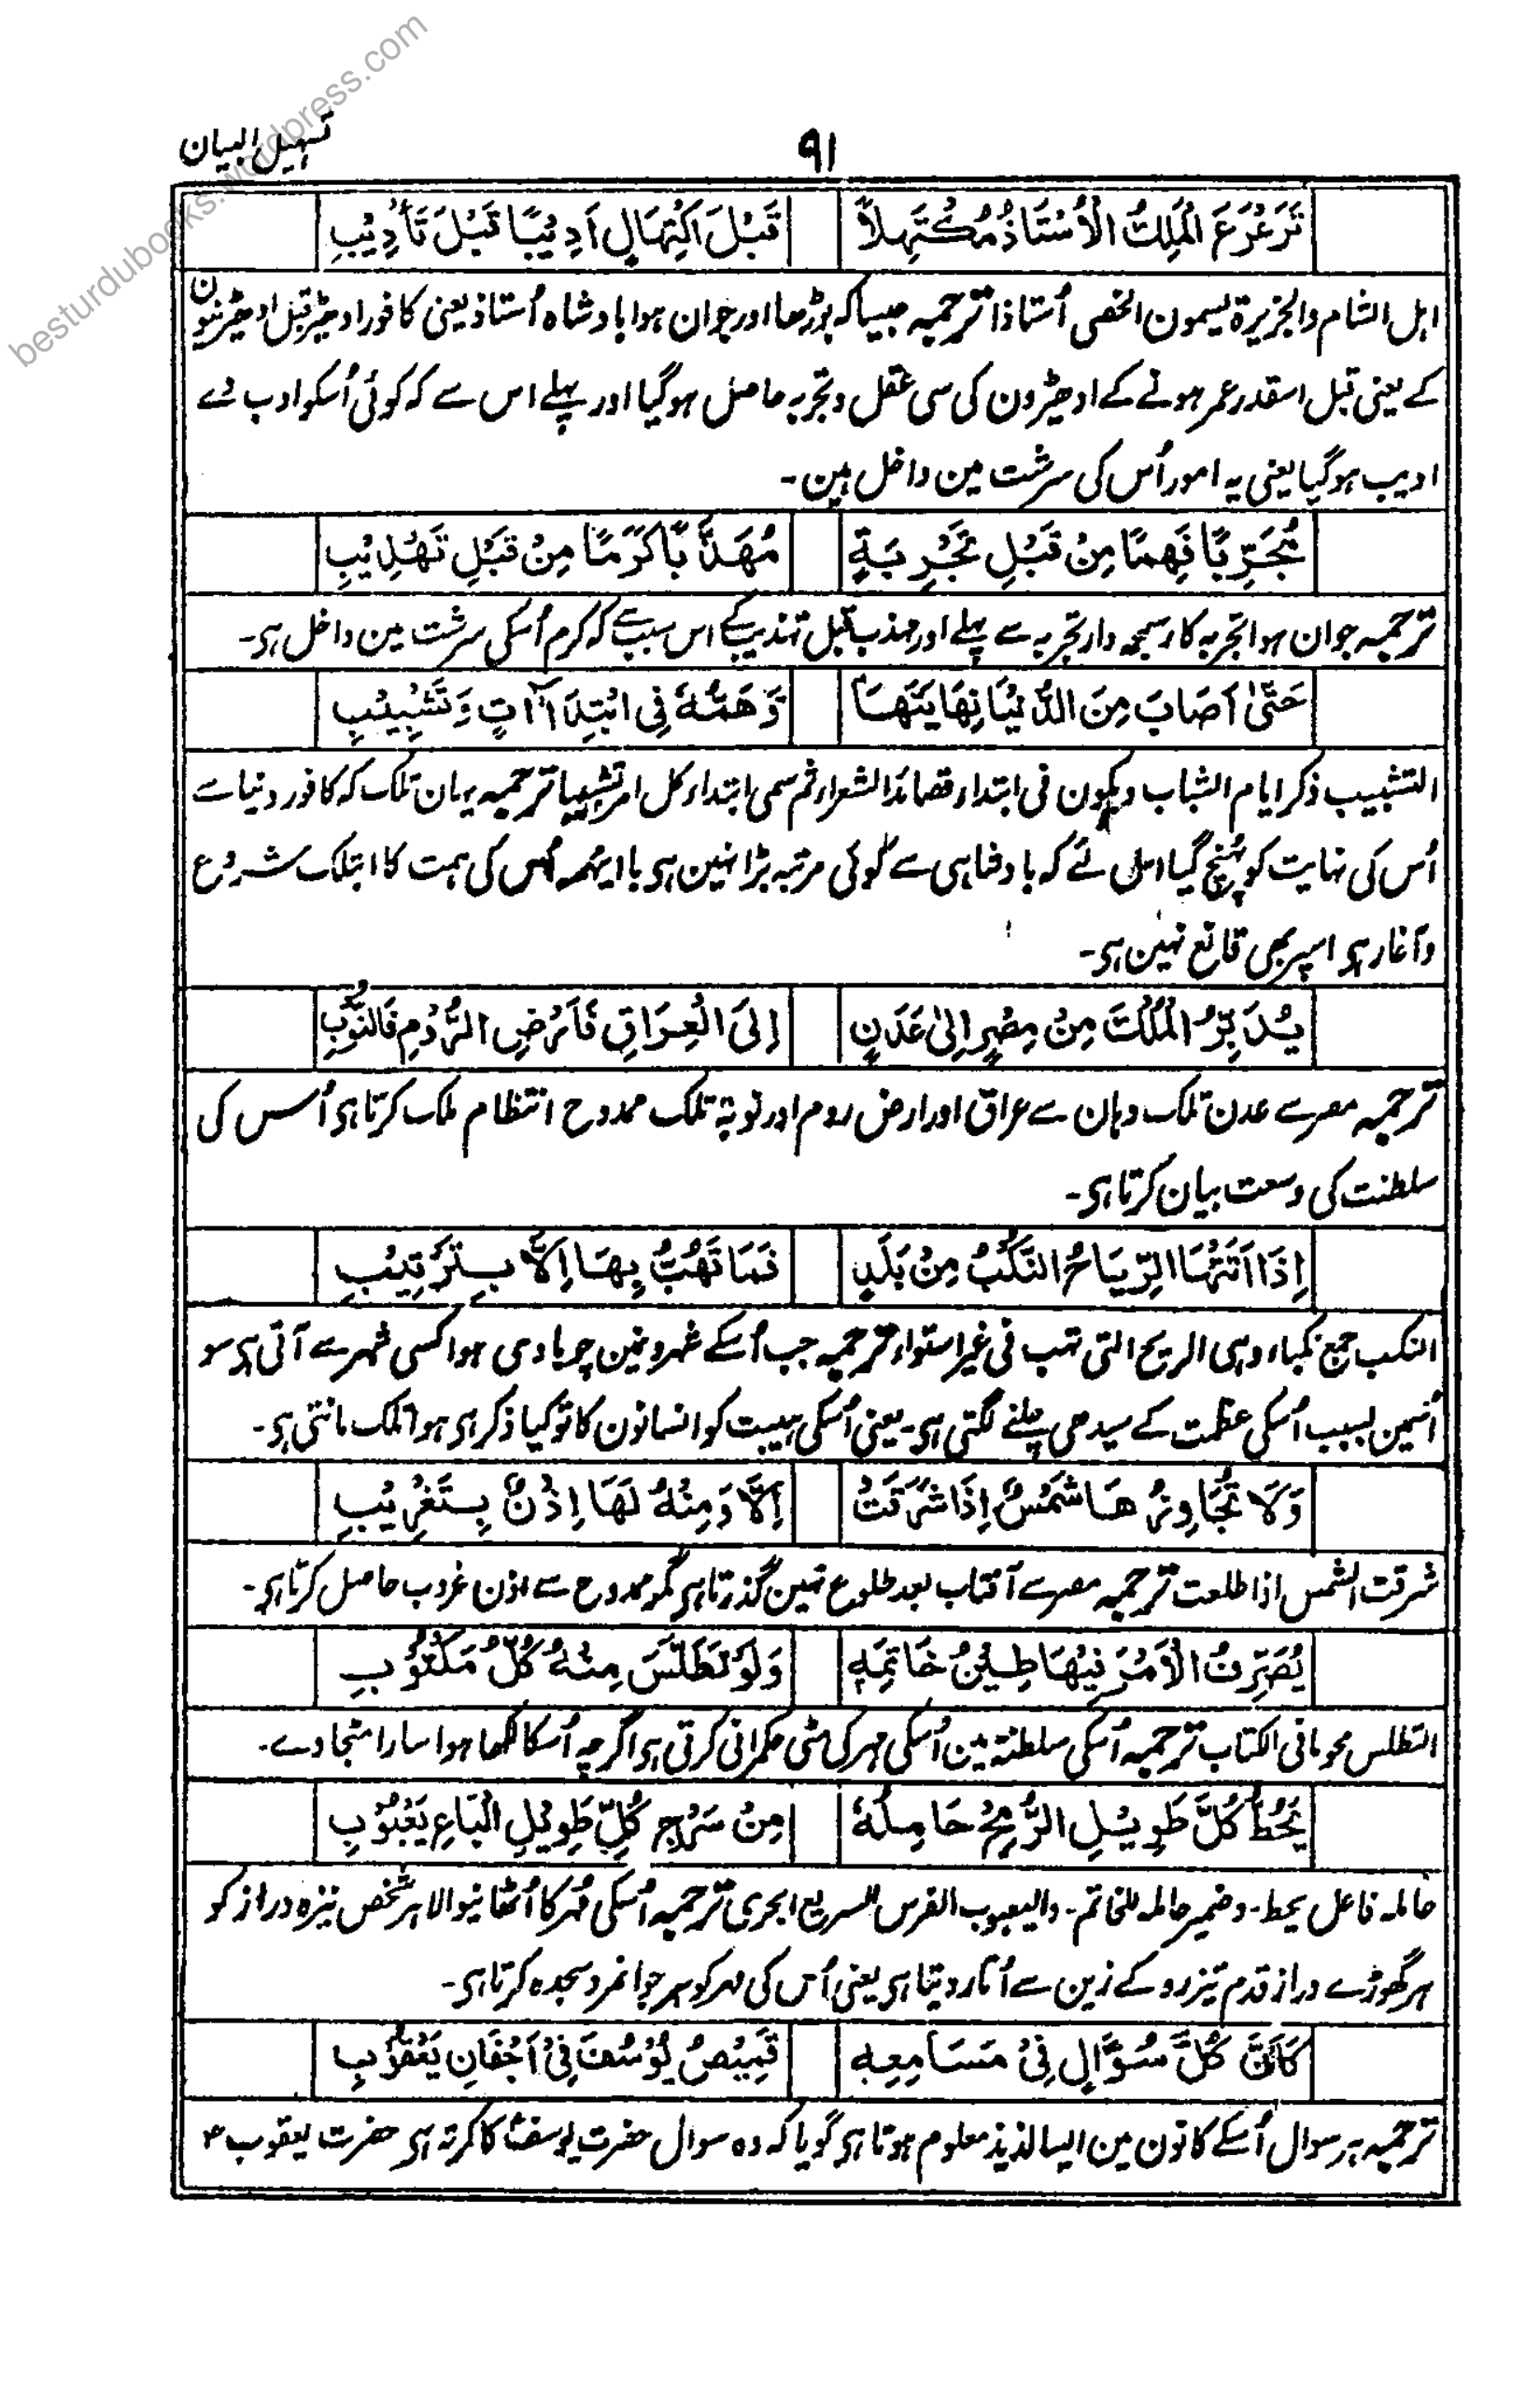 besturdubooks.wordpress.com
تسہیل البیان
۹۱
تَرَعْرَعَ الْمَلِكُ الْاُسْتَاذُ مُكْتَهِلاً قَبْلَ اكْتِهَالٍ اَدِيْبًا قَبْلَ تَأْدِيْبِ
اہل الشام والجزیرۃ یسمون الخصی اُستاذا ترجمہ جیسا کہ بڑھا اور جوان ہوا بادشاہ اُستاذ یعنی کافور ادھیڑ قبل ادھیڑپنون
کے یعنی قبل اسقدر عمر ہونے کے ادھیڑون کی سی عقل و تجربہ حاصل ہوگیا اور پہلے اس سے کہ کوئی اُسکو ادب دے
ادیب ہوگیا یعنی یہ امور اُس کی سرشت مین داخل ہین۔
مُجَرِّبًا فَهِمًا مِنْ قَبْلِ تَجْرِبَةٍ مُهَذَّبًا كَرَمًا مِنْ قَبْلِ تَهْذِيْبِ
ترجمہ جوان ہوا تجربہ کار سمجھ دار تجربہ سے پہلے اور مہذب قبل تہذیب کے اس سبب سے کہ کرم اُسکی سرشت مین داخل ہی۔
حَتّٰى اَصَابَ مِنَ الدُّنْيَا نِهَايَتَهَا وَهَمُّهٗ فِى ابْتِدَاآتٍ وَتَشْبِيْبِ
التشبیب ذکر ایام الشباب ویکون فی ابتداء قصائد الشعراء ثم سمی ابتداء کل امر تشبیبا ترجمہ یہان تلک کہ کافور دنیا سے
اُس کی نہایت کو پہُنچ گیا اسلئے کہ بادشاہی سے کوئی مرتبہ بڑا نہین ہی باینہمہ اُس کی ہمت کا ابتلک شروع
وآغاز ہی اسپر بھی قانع نہین ہی۔
يُدَبِّرُ الْمُلْكَ مِنْ مِصْرٍ اِلٰى عَدَنٍ اِلَى الْعِرَاقِ فَاَرْضِ الرُّوْمِ فَالنُّوْبِ
ترجمہ مصر سے عدن تلک وہان سے عراق اور ارض روم اور نوبہ تلک ممدوح انتظام ملک کرتا ہی اُس کی
سلطنت کی وسعت بیان کرتا ہی۔
اِذَا اَتَتْهَا الرِّيَاحُ النُّكْبُ مِنْ بَلَدٍ فَمَا تَهُبُّ بِهَا اِلَّا بِتَرْتِيْبِ
النکب جمع نکباء وہی الریح التی تہب فی غیر استواء ترجمہ جب اُسکے شہرونمین چوبادی ہوا کسی شہر سے آتی ہی سو
اُنمین بسبب اُسکی عظمت کے سیدھی چلنے لگتی ہی۔ یعنی اُسکی ہیبت کو انسانون کا تو کیا ذکر ہی ہوا تلک مانتی ہی۔
وَلَا تُجَاوِزُهَا شَمْسٌ اِذَا شَرَقَتْ اِلَّا وَمِنْهُ لَهَا اِذْنٌ بِتَغْرِيْبِ
شرقت الشمس اذا طلعت ترجمہ مصر سے آفتاب بعد طلوع نہین گذرتا ہی مگر ممدوح سے اذن غروب حاصل کرتا ہی۔
يُصَرِّفُ الْاَمْرَ فِيْهَا طِيْنُ خَاتَمِهٖ وَلَوْ تَطَلَّسَ مِنْهُ كُلُّ مَكْتُوْبِ
التطلس محو ما فی الکتاب ترجمہ اُسکی سلطنۃ مین اُسکی مہر کی مٹی حکمرانی کرتی ہی اگرچہ اُسکا لکھا ہوا سارا مٹجاوے۔
يَحُطُّ كُلَّ طَوِيْلِ الرُّمْحِ حَامِلُهٗ مِنْ سَرْجِ كُلِّ طَوِيْلِ الْبَاعِ يَعْبُوْبِ
حاملہ فاعل یحط۔ وضمیر حاملہ للخاتم۔ والیعبوب الفرس السریع الجری ترجمہ اُسکی مُہر کا اُٹھانیوالا ہر شخص نیزہ دراز کو
ہر گھوڑے دراز قدم تیزرو کے زین سے اُتار دیتا ہی یعنی اُس کی مہر کو ہر جوانمرد سجدہ کرتا ہی۔
كَاَنَّ كُلَّ سُؤَالٍ فِىْ مَسَامِعِهٖ قَمِيْصُ يُوْسُفَ فِىْ اَجْفَانِ يَعْقُوْبِ
ترجمہ ہر سوال اُسکے کانون مین ایسا لذیذ معلوم ہوتا ہی گویا کہ وہ سوال حضرت یوسفؑ کا کرتہ ہی حضرت یعقوبؑ